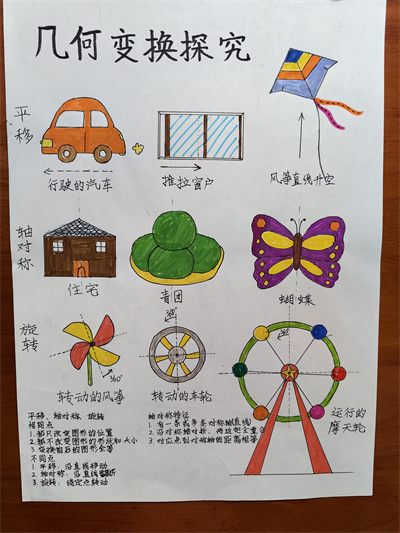 几何变换探究
平移
行驶的汽车
推拉窗户
风筝直线升空
轴对称
住宅
青团
蝴蝶
旋转
360°
转动的风筝
转动的车轮
运行的
摩天轮
平移、轴对称、旋转
相同点
1. 都只改变图形的位置
2. 都不改变图形的形状和大小
3. 变换前后的图形全等
不同点
1. 平移：沿直线移动
2. 轴对称：沿直线翻折
3. 旋转：绕定点转动
轴对称特征
1. 有一条或多条对称轴(直线)
2. 沿对称轴对折，两边完全重合
3. 对应点到对称轴的距离相等